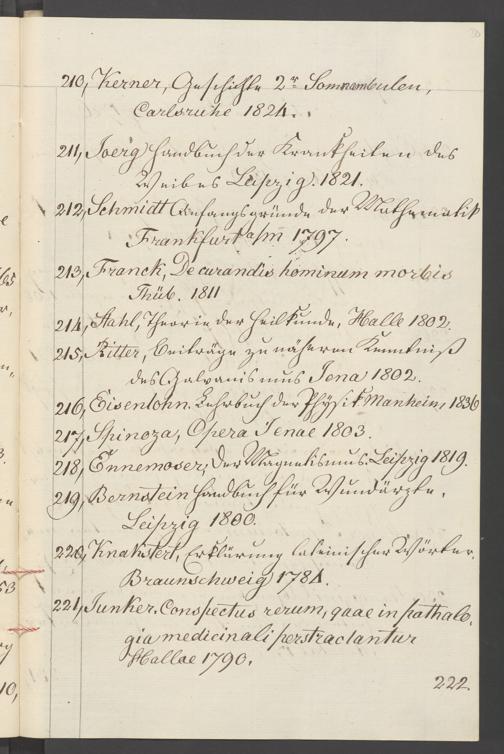 210, Kerner, Geschichte 2r Somnambulen,
Carlsruhe 1824.
211, Joerg Handbuch der Krankheiten des
Weibes Leipzig. 1821.
212, Schmidt Anfangsgründe der Mathematik
Frankfurt a/m 1797.
213, Franck, De curandis hominum morbis
Thüb. 1811
214, Stahl, Theorie der Heilkunde, Halle 1802.
215, Ritter, Beiträge zu näheren Kenntniß
des Galvanismus Jena 1802.
216, Eisenlohn. Lehrbuch der Physik Manheim, 1836
217, Spinoza, Opera Jenae 1803.
218, Ennemoser, Der Magnetismus. Leipzig 1819.
219, Bernstein Handbuch für Wundärzte.
Leipzig 1800.
220, Erklärung lateinischer Wörter.
Braunschweig 1784.
221, Junker. Conspectus rerum, quae in patholo.
gia medicinali perstractantur
Hallae 1790.
222.